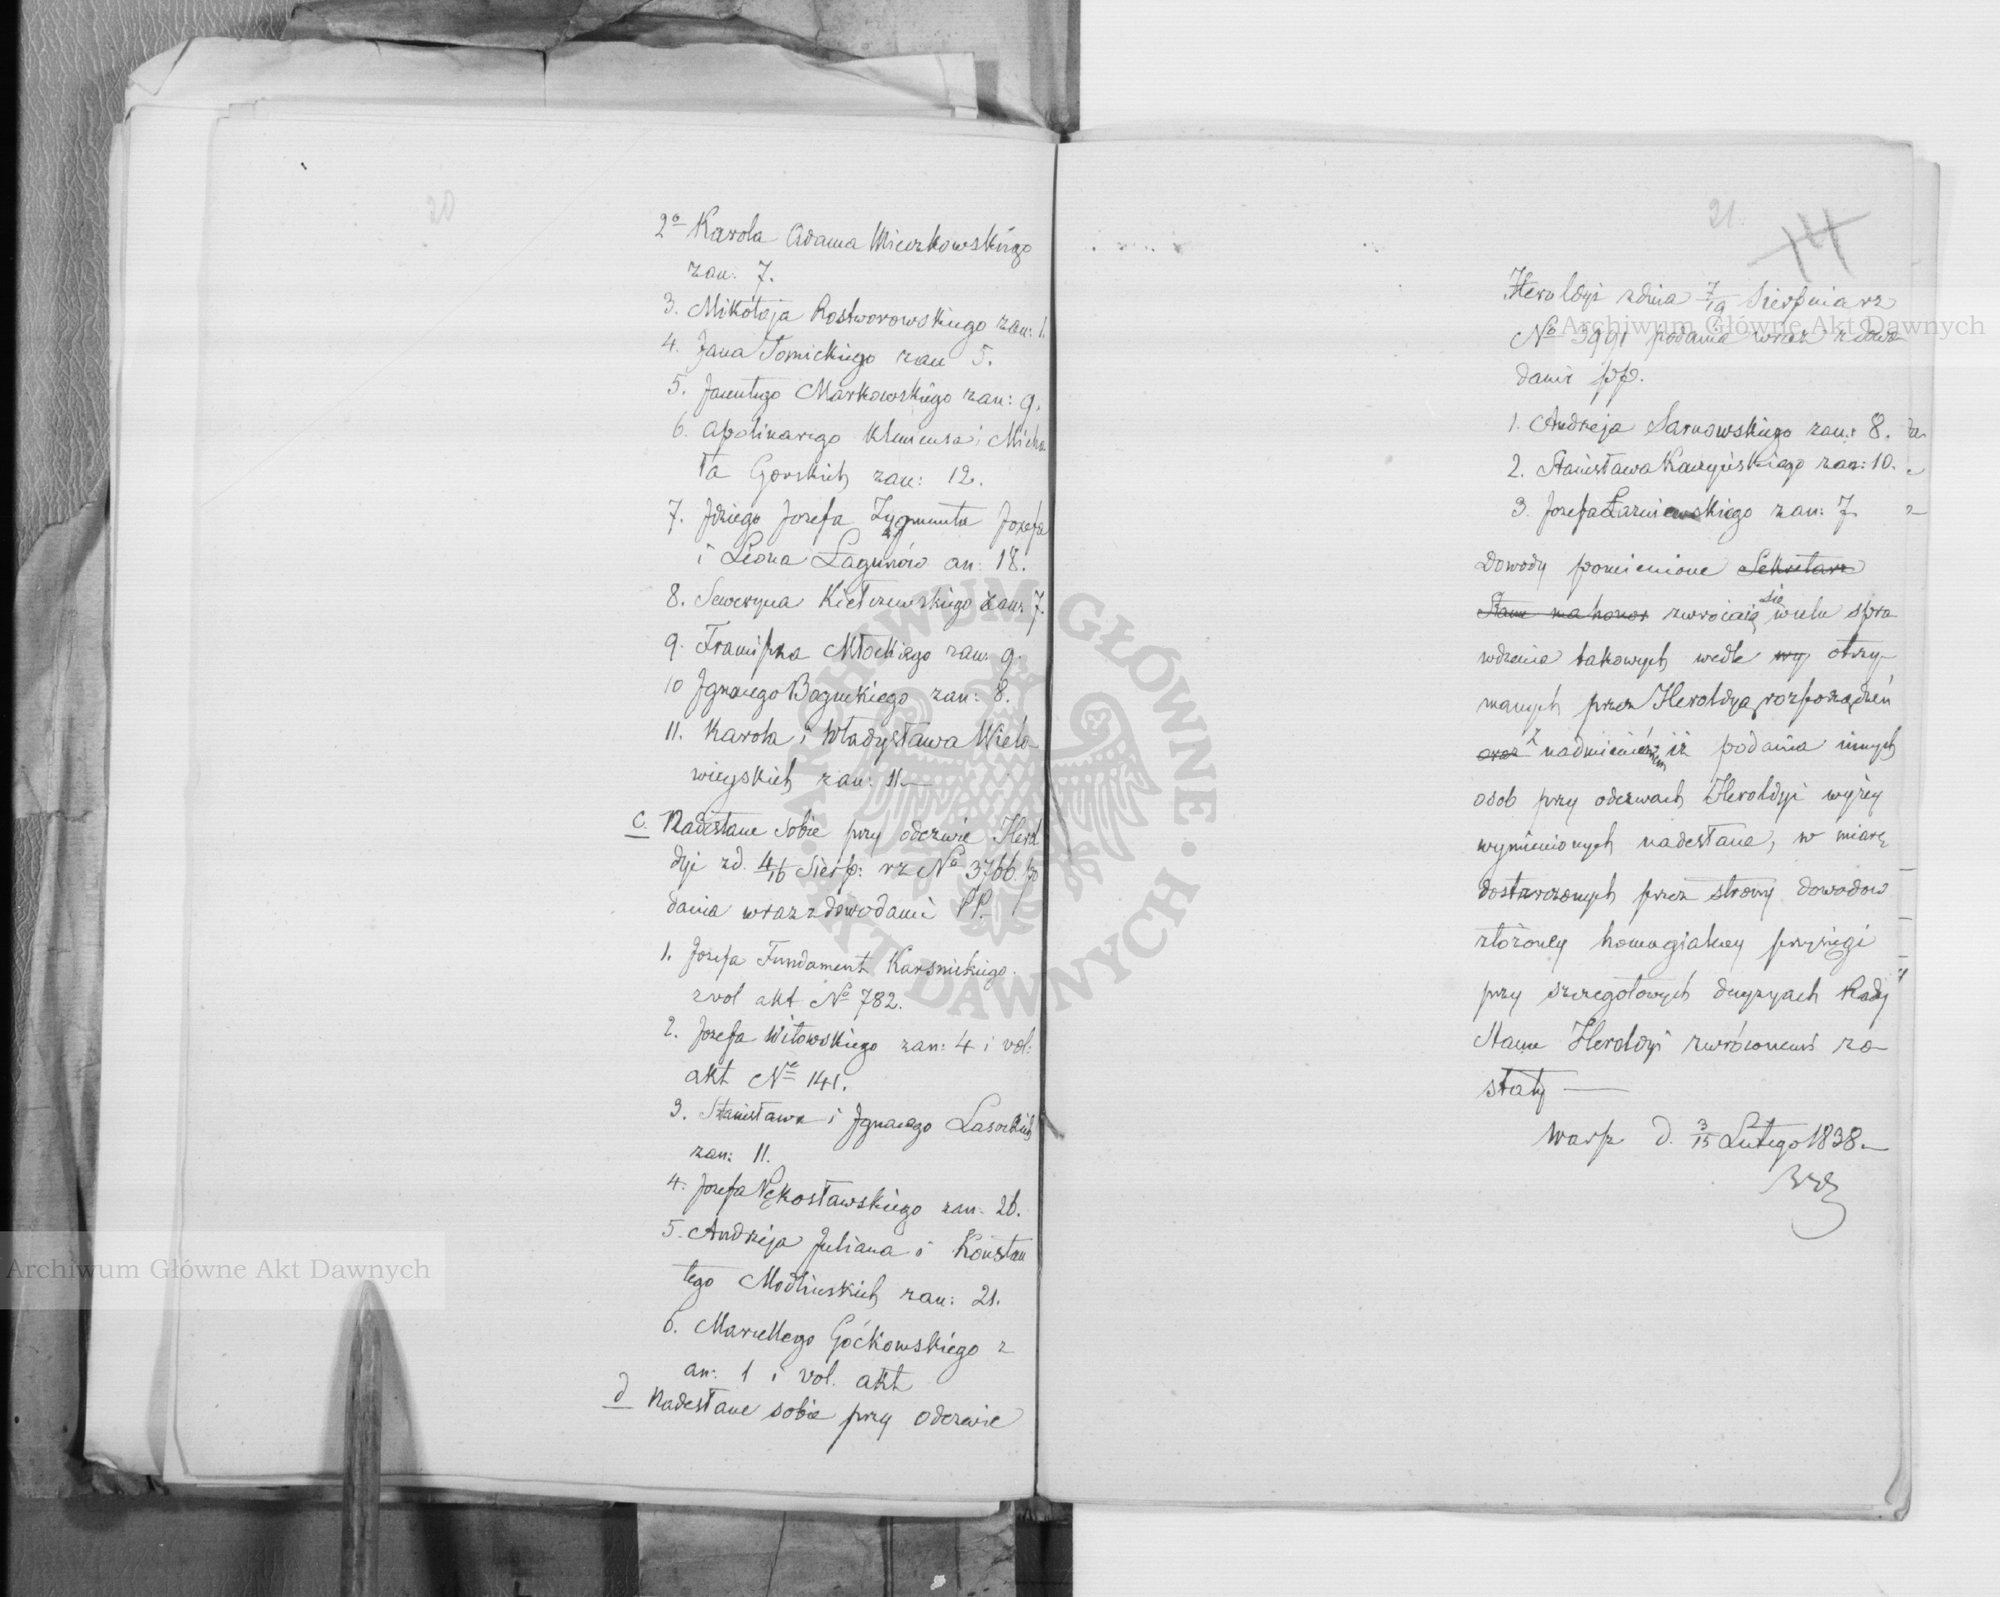 20
2o Karola Adama Mieczkowskiego
zan: 7.
3. Mikołaja Rostworowskiego zan: 1.
4. Jana Tomickiego zan 5.
5. Jacentego Markowskiego zan: 9.
6. Apolinarego Klemensa i Micha
ła Gorskich zan: 12.
7. Jdziego Jozefa Zygmunta Jozefa
i Leona Łagunów an: 18.
8. Seweryna Kiełczewskiego zan: 7.
9. Franciszka Młockiego zan: 9.
10 Jgnacego Baguckiego zan: 8.
11. Karola i Władysława Wielo-
wieyskich zan: 11.
c. Nadesłane sobie przy odezwie Herol
dyi zd. 4/16 Sierp: rz No 3766. po
dania wraz z dowodami PP.
1. Jozefa Fundament Karsnickiego
z vol akt No 782.
2. Jozefa Witowskiego zan: 4 i vol:
akt No 141.
3. Stanisława i Jgnacego Lasockich
zan: 11.
4. Jozefa Nękosławskiego zan: 26.
5. Andrzeja Juliana i Konstan
tego Modlinskich zan: 21.
6. Marcellego Goćkowskiego z
an: 1 i vol. akt
d Nadesłane sobie przy odezwie
21.
14
Heroldyi z dnia 7/19 Sierpnia rz
No 3991 podania wraz z dowo
dami pp.
1. Andrzeja Sarnowskiego zan: 8.
2. Stanisława Kaczyńskiego zan: 10.
3. Jozefa Łazniewskiego zan: 7
Dowody pomienione Sekretarz
Stanu ma honor zwrócaią się w celu spra
wdzenia takowych wedle wy otrzy
manych przez Heroldyą rozporządzeń
oraz z nadmienieniem iż podania innych
osob przy odezwach Heroldyi wyżey
wymienionych nadesłane, w miarę
dostarczonych przez strony dowodow
złożoney homagialney przysięgi
przy szczegołowych decyzyach Rady
Stanu Heroldyi zwróconemi zo
stały
Warsz. d. 3/15 Lutego 1838.
Archiwum Główne Akt Dawnych
Archiwum Główne Akt Dawnych
ARCHIWUM GŁÓWNE AKT DAWNYCH